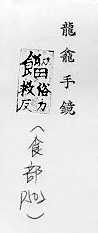 龍龕手鏡
餾俗力
救反
(食部 P501)